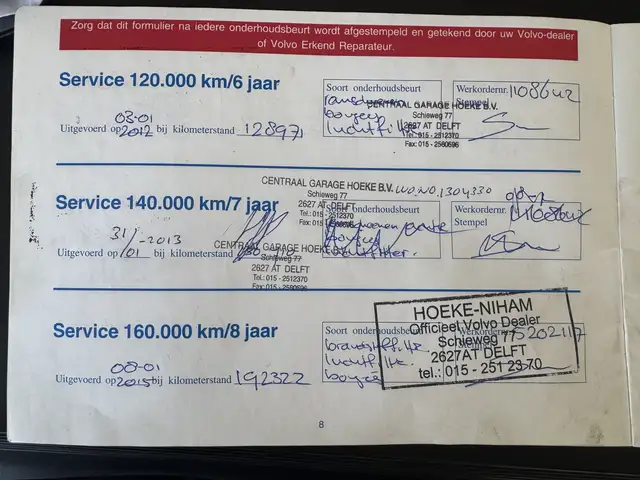 Zorg dat dit formulier na iedere onderhoudsbeurt wordt afgestempeld en getekend door uw Volvo-dealer
of Volvo Erkend Reparateur.
Service 120.000 km/6 jaar
Soort onderhoudsbeurt
Werkordernr.
Stempel
CENTRAAL GARAGE HOEKE B.V.
Schieweg 77
2627 AT DELFT
Tel.: 015 - 2512370
Fax: 015 - 2560596
03-01
Uitgevoerd op 2012 bij kilometerstand 128971
bougies
luchtfilter
Service 140.000 km/7 jaar
CENTRAAL GARAGE HOEKE B.V.
Schieweg 77
2627 AT DELFT
Tel.: 015 - 2512370
WO.NO. 1304330
Soort onderhoudsbeurt
Werkordernr.
Stempel
31/-2013
Uitgevoerd op /01 bij kilometerstand
CENTRAAL GARAGE HOEKE B.V.
Schieweg 77
2627 AT DELFT
Tel.: 015 - 2512370
Fax: 015 - 2560596
Service 160.000 km/8 jaar
Soort onderhoudsbeurt
Werkordernr.
Stempel
HOEKE-NIHAM
Officieel Volvo Dealer
Schieweg 77
2627 AT DELFT
tel.: 015 - 251 23 70
brandstoffilte
luchtfilte
bougie
08-01
Uitgevoerd op 2015 bij kilometerstand 192322
8